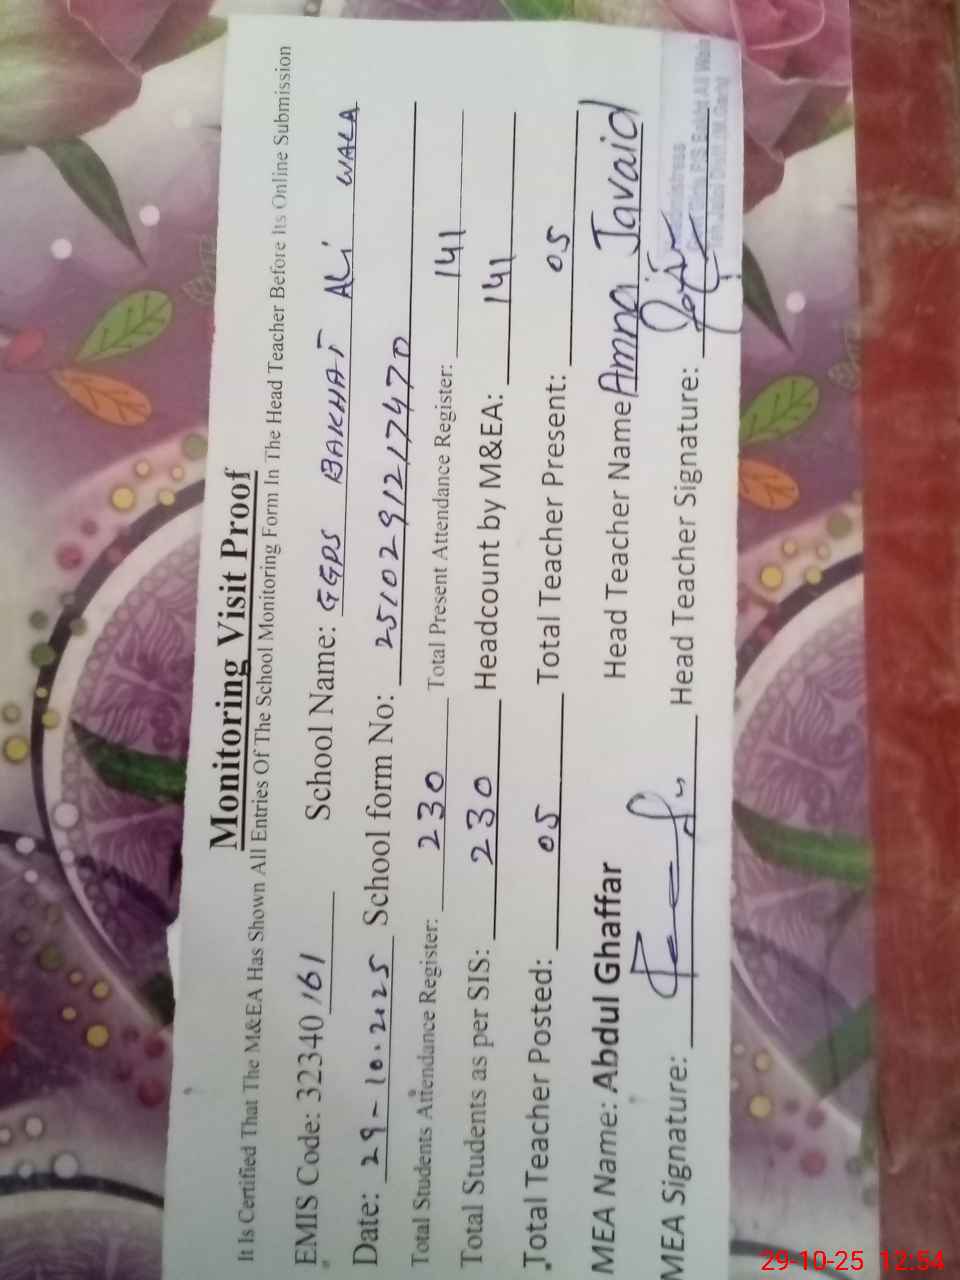 Monitoring Visit Proof
It Is Certified That The M&EA Has Shown All Entries Of The School Monitoring Form In The Head Teacher Before Its Online Submission
EMIS Code: 32340 161 School Name: GGPS BAKHAT ALi WALA
Date: 29-10.2025 School form No: 2510291217470
Total Students Attendance Register: 230 Total Present Attendance Register: 141
Total Students as per SIS: 230 Headcount by M&EA: 141
Total Teacher Posted: 05 Total Teacher Present: 05
MEA Name: Abdul Ghaffar Head Teacher Name Amna Javaid
MEA Signature: Head Teacher Signature:
29-10-25 12:54